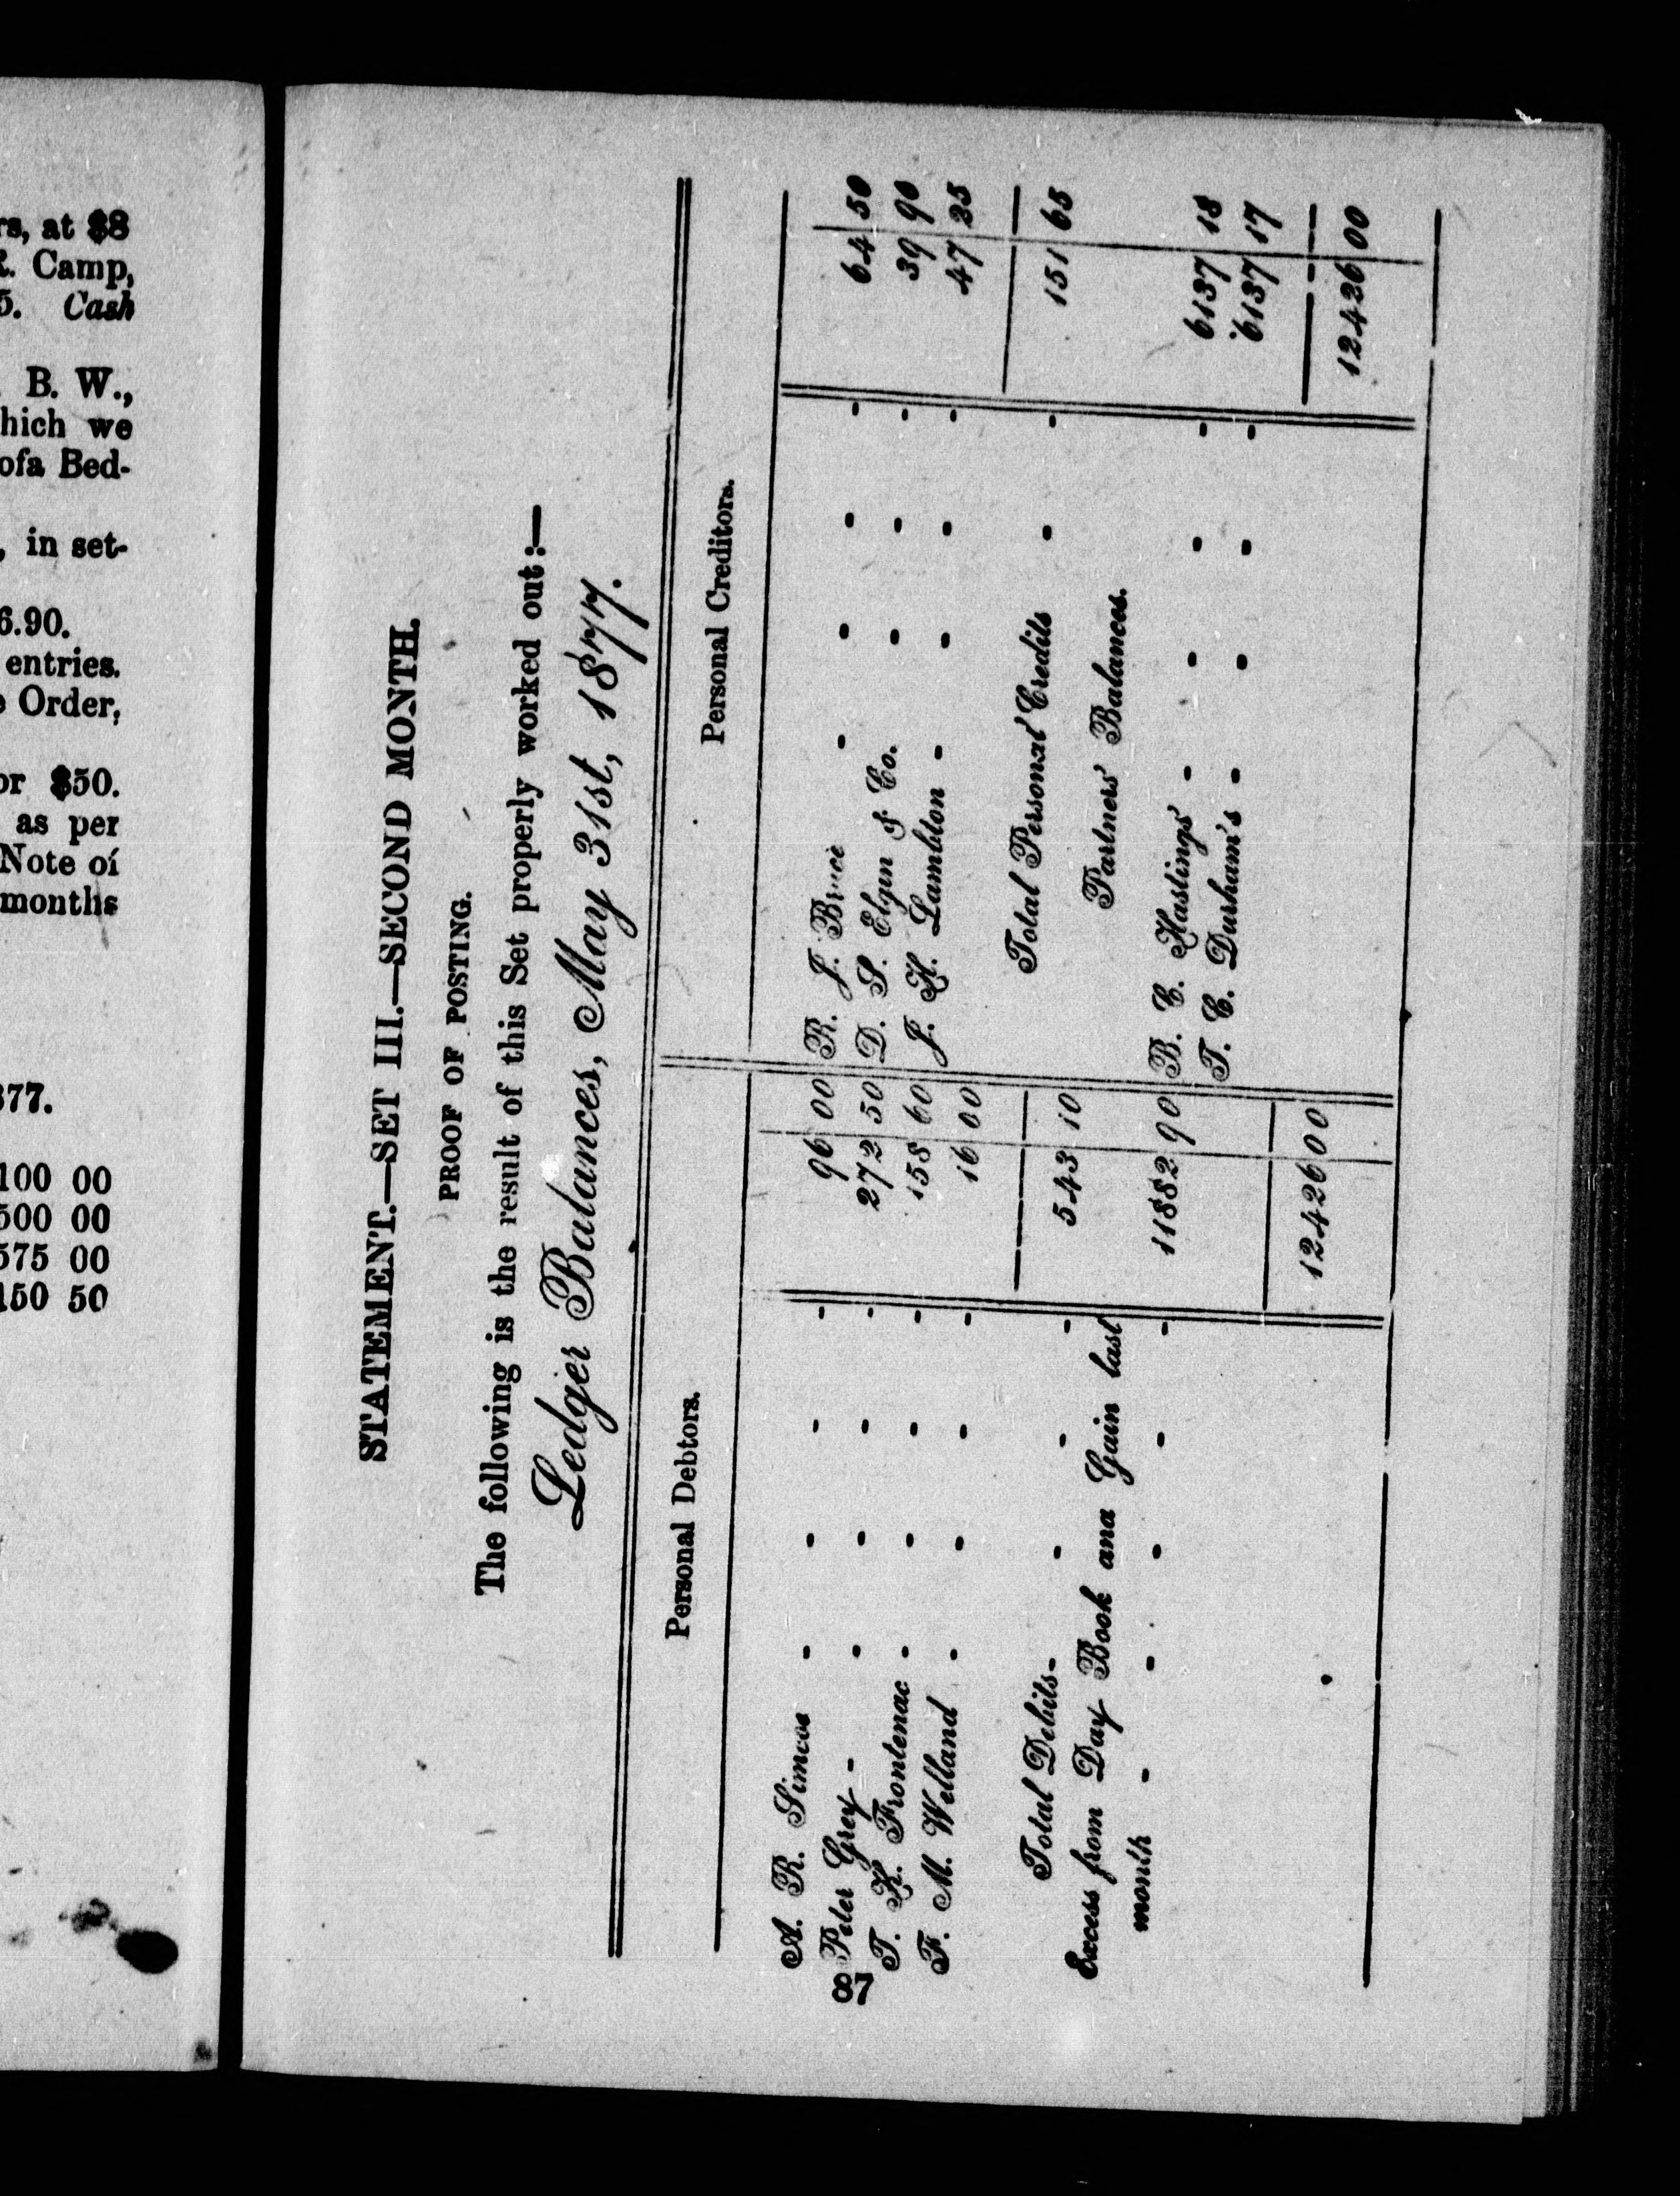 rs, at $8
R. Camp,
5. Cash
B. W.,
hich we
ofa Bed-
, in set-
6.90.
entries.
Order,
or $50.
as per
Note of
months
377.
100 00
500 00
575 00
150 50
STATEMENT.—SET III.—SECOND MONTH.
PROOF OF POSTING.
The following is the result of this Set properly worked out:—
Ledger Balances, May 31st, 1877.
Personal Debtors.
A. R. Simcoe - - - - 96 00
Peter Grey - - - - - 272 50
T. H. Frontenac - - - - 158 60
F. M. Welland - - - - 16 00
Total Debits - - - - 543 10
Excess from Day Book and Gain last
month - - - - - 11882 90
12426 00
Personal Creditors.
R. J. Bruce - - - - 64 50
D. S. Elgin & Co. - - - 39 90
J. H. Lambton - - - - 47 25
Total Personal Credits - - 151 65
Partners' Balances.
B. C. Hastings' - - - - 6137 18
T. C. Durham's - - - - 6137 17
12426 00
87